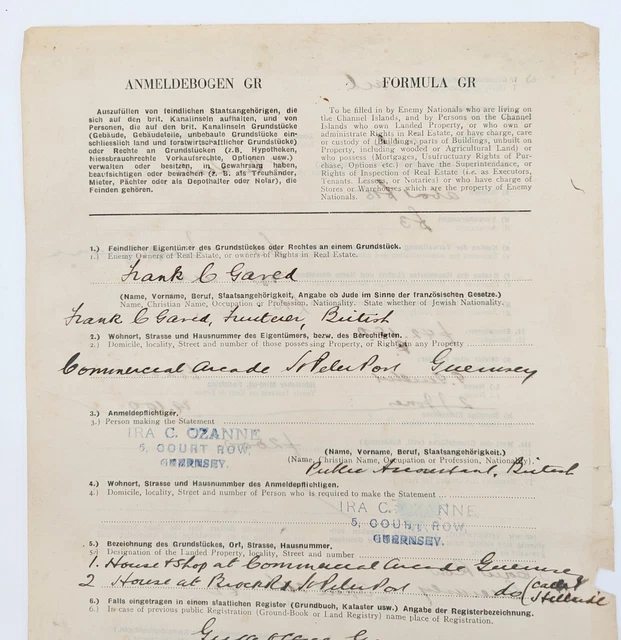 ANMELDEBOGEN GR
Auszufüllen von feindlichen Staatsangehörigen, die
sich auf den brit. Kanalinseln aufhalten, und von
Personen, die auf den brit. Kanalinseln Grundstücke
(Gebäude, Gebäudeteile, unbebaute Grundstücke ein-
schliesslich land und forstwirtschaftlicher Grundstücke)
oder Rechte an Grundstücken (z.B. Hypotheken,
Niessbrauchrechte Verkaufsrechte, Optionen usw.)
verwalten oder besitzen, in Gewahrsam haben,
beaufsichtigen oder bewachen (z. B. als Treuhänder,
Mieter, Pächter oder als Depothalter oder Notar), die
Feinden gehören.
FORMULA GR
To be filled in by Enemy Nationals who are living on
the Channel Islands, and by Persons on the Channel
Islands who own Landed Property, or who own or
administrate Rights in Real Estate, or have charge, care
or custody of (Buildings, parts of Buildings, unbuilt on
Property, including wooded or Agricultural Land) or
who possess (Mortgages, Usufructuary Rights of Pur-
chase, Options etc.) or have the Superintendence, or
Rights of Inspection of Real Estate (i.e. as Executors,
Tenants, Lessors, or Notaries) or who have charge of
Stores or Warehouses which are the property of Enemy
Nationals.
1.) Feindlicher Eigentümer des Grundstückes oder Rechtes an einem Grundstück.
1.) Enemy Owners of Real Estate, or owners of Rights in Real Estate.
Frank C Gared
(Name, Vorname, Beruf, Staatsangehörigkeit, Angabe ob Jude im Sinne der französischen Gesetze.)
Name, Christian Name, Occupation or Profession, Nationality. State whether of Jewish Nationality.
Frank C Gared, Fruiterer, British
2.) Wohnort, Strasse und Hausnummer des Eigentümers, bezw. des Berechtigten.
2.) Domicile, locality, Street and number of those possessing Property, or Rights in any Property
Commercial Arcade St Peter Port Guernsey
3.) Anmeldepflichtiger.
3.) Person making the Statement
IRA C. OZANNE
5, COURT ROW,
GUERNSEY.
(Name, Vorname, Beruf, Staatsangehörigkeit.)
(Name, Christian Name, Occupation or Profession, Nationality).
Public Accountant, British
4.) Wohnort, Strasse und Hausnummber des Anmeldepflichtigen.
4.) Domicile, locality, Street and number of Person who is required to make the Statement
IRA C. OZANNE,
5, COURT ROW,
GUERNSEY.
5.) Bezeichnung des Grundstückes, Ort, Strasse, Hausnummer.
5. Designation of the Landed Property, locality, Street and number
1. House & Shop at Commercial Arcade Guernse
2 House at Brock Rd St Peter Port do
6.) Falls eingetragen in einem staatlichen Register (Grundbuch, Kataster usw.) Angabe der Registerbezeichnung.
6.) In case of previous Public Registration (Ground-Book or Land Registry) name place of Registration.